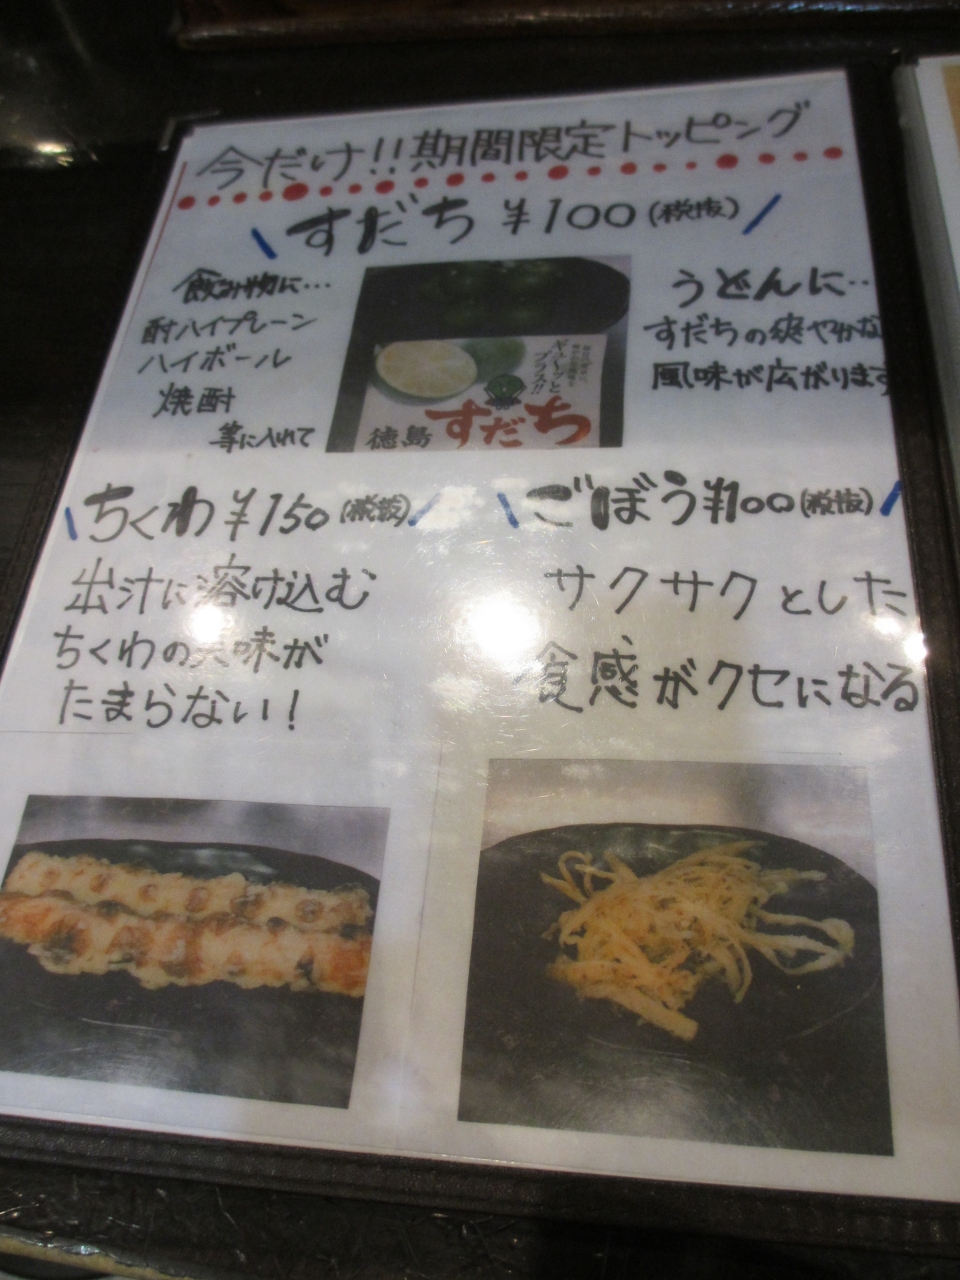 今だけ!!期間限定トッピング
すだち ¥100(税抜)
飲み物に…
酎ハイプレーン
ハイボール
焼酎
等に入れて
ギューッと
プラス!!
徳島 すだち
うどんに…
すだちの爽やかな
風味が広がります
ちくわ ¥150(税抜)
出汁に溶け込む
ちくわの美味が
たまらない!
ごぼう ¥100(税抜)
サクサクとした
食感がクセになる